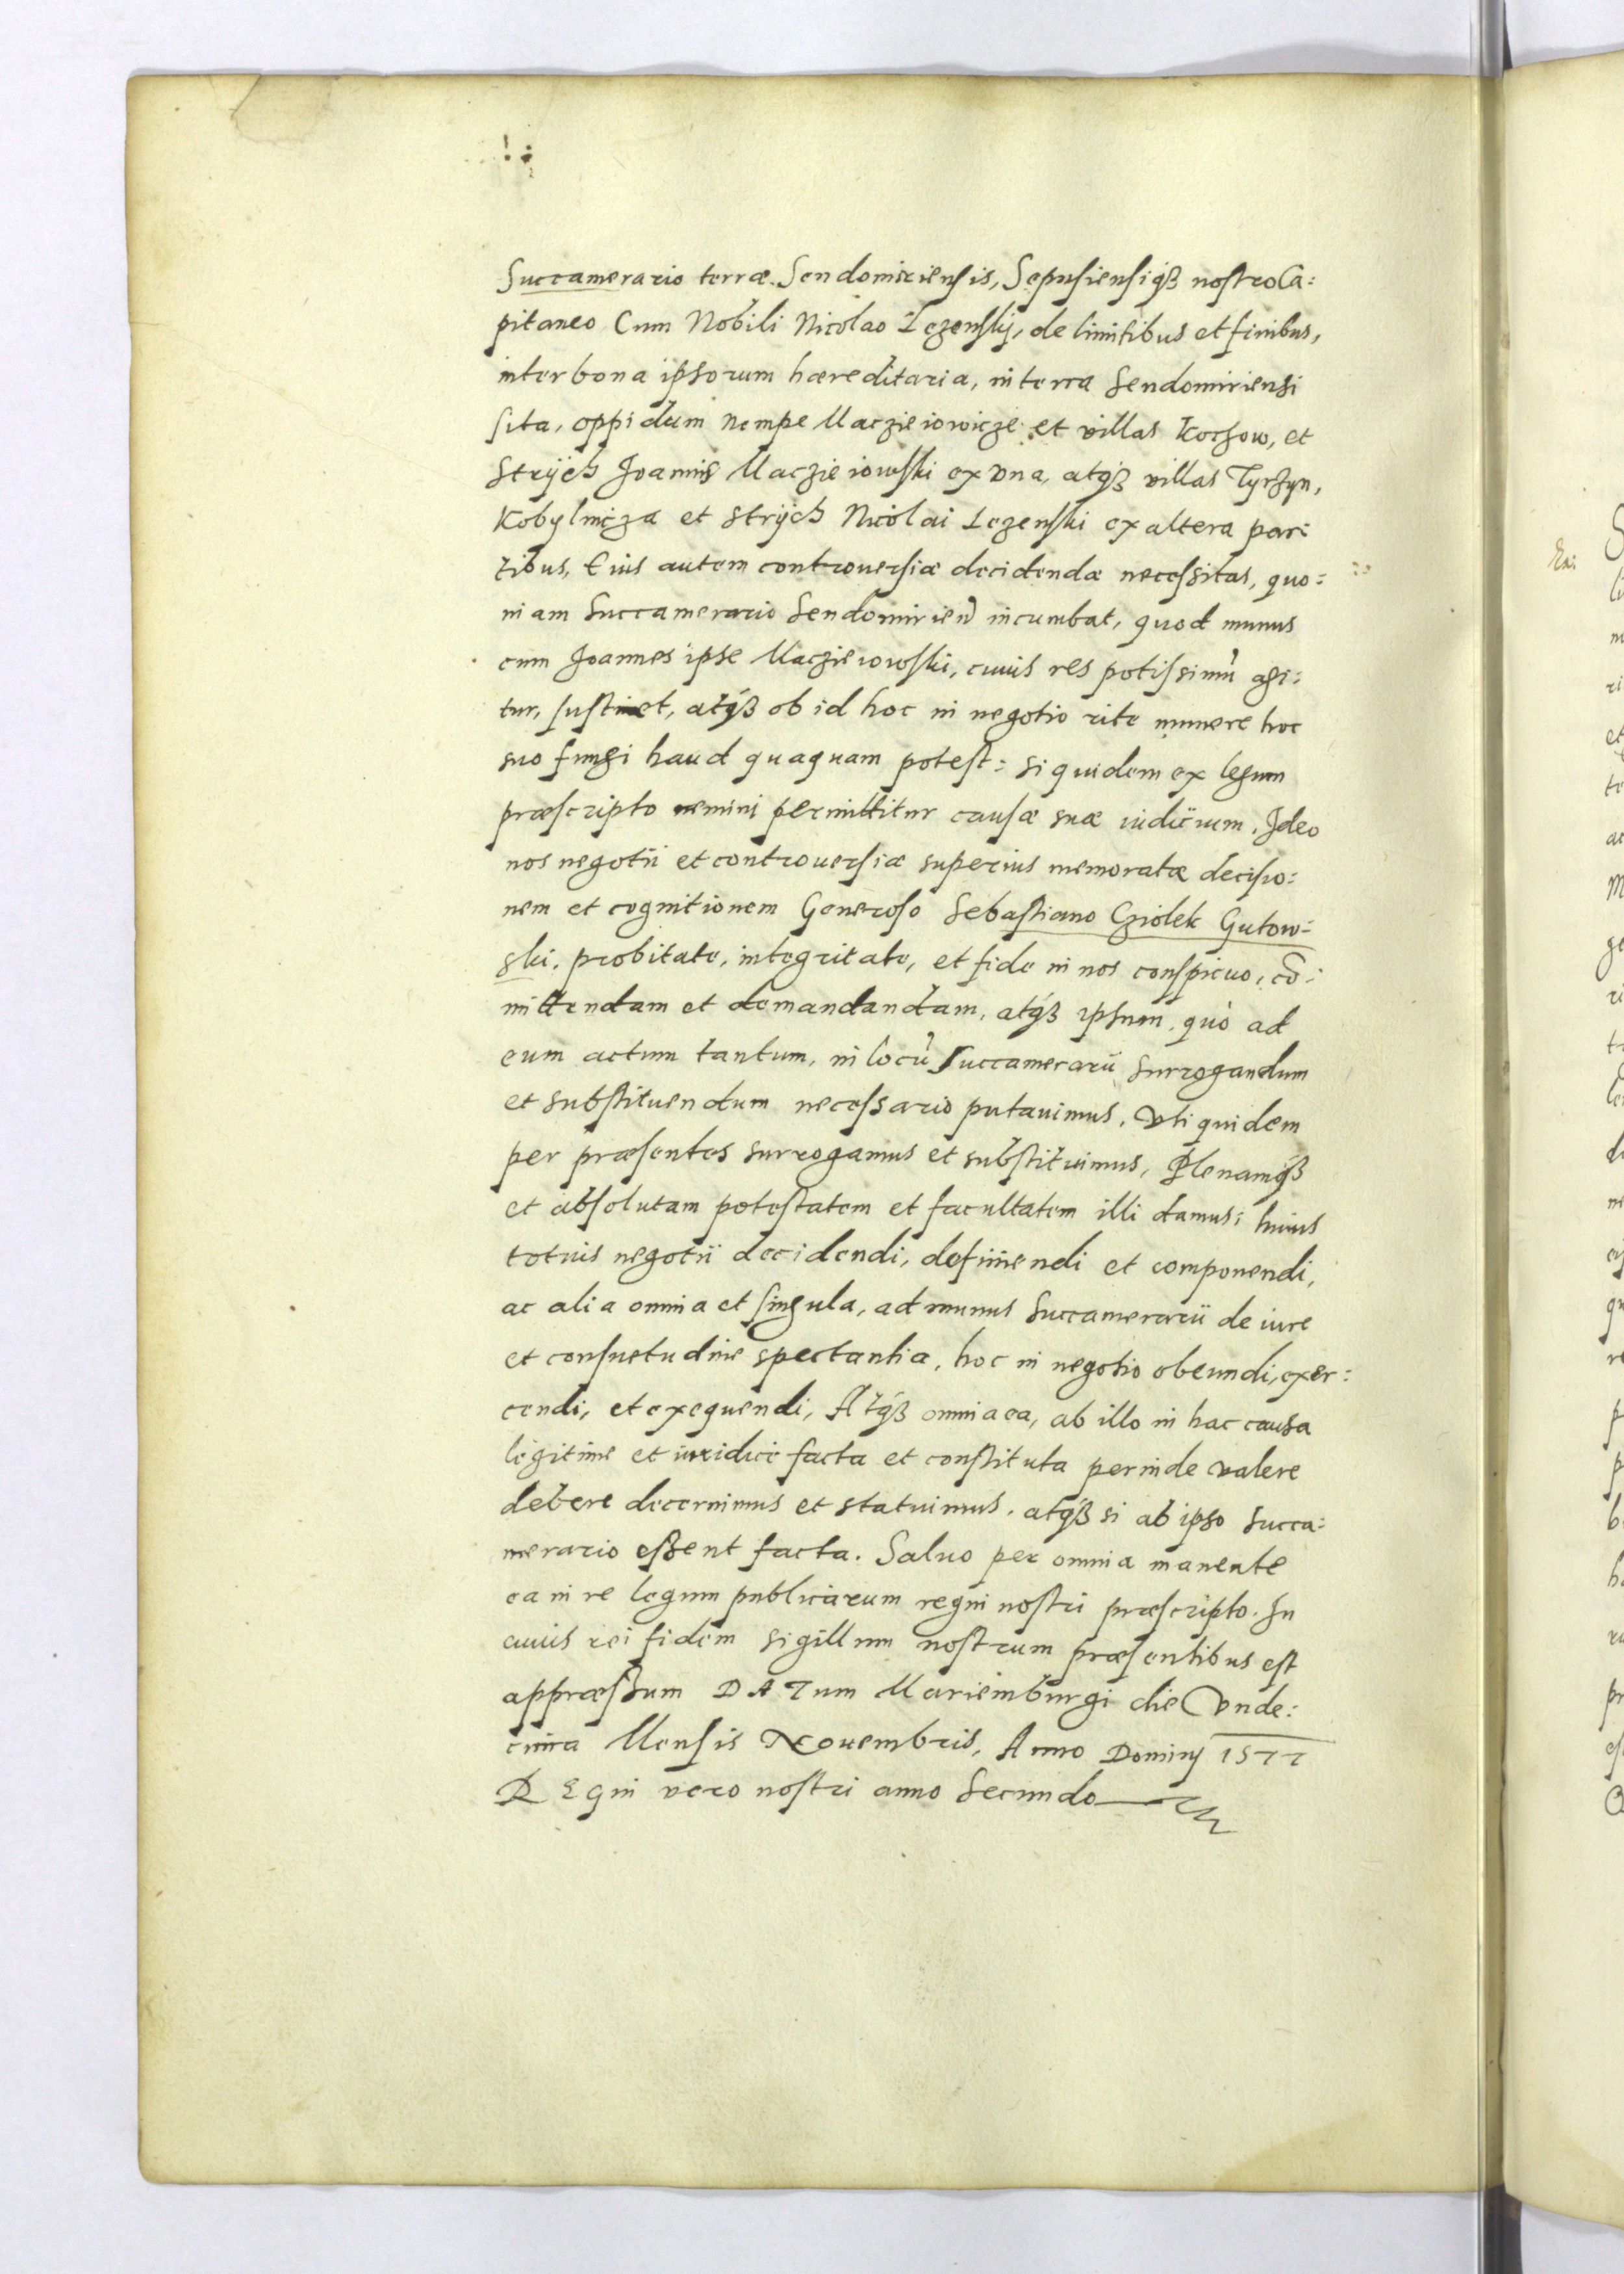 Succamerario terræ Sendomiriensis, Sepusiensiqꝫ nostro Ca:
pitaneo Cum Nobili Nicolao Lezenskij, de limitibus et finibus,
inter bona ipsorum hæreditaria, in terra Sendomiriensi
sita, oppidum nempe Maczieiowicze et villas Kochow, et
Strÿch Joannis Maczieiowski ex vna, atqꝫ villas Tyrzyn,
Kobylnicza et Strÿch Nicolai Lezenski ex altera par:
tibus, Eius autem controuersiæ decidendæ necessitas, quo:
niam Succamerario Sendomirien̄ incumbat, quod munus
cum Joannes ipse Maczieiowski, cuius res potissimū agi:
tur, sustinet, atqꝫ ob id hoc in negotio rite munere hoc
suo fungi haud quaquam potest: siquidem ex legum
præscripto nemini permittitur causæ suæ iudicium. Ideo
nos negotii et controuersiæ superius memoratæ decisio:
nem et cognitionem Generoso Sebastiano Cziolek Gutow:
ski, probitate, integritate, et fide in nos conspicuo, cō:
mittendam et demandandam, atqꝫ ipsum, quò ad
eum actum tantum, in locū Succamerarii surrogandum
et substituendum necessario putauimus, Vti quidem
per præsentes surrogamus et substituimus, Plenamqꝫ
et absolutam potestatem et facultatem illi damus, huius
totius negotii decidendi, definiendi et componendi,
ac alia omnia et singula, ad munus Succamerarii de iure
et consuetudine spectantia, hoc in negotio obeundi, exer:
cendi, et exequendi, Atqꝫ omnia ea, ab illo in hac causa
legitime et iuridice facta et constituta perinde valere
debere decernimus et statuimus, atqꝫ si ab ipso Succa:
merario essent facta. Saluo per omnia manente
ea in re legum publicarum regni nostri præscripto. In
cuius rei fidem sigillum nostrum præsentibus est
appræssum DATum Mariemburgi die Vnde:
cima Mensis Nouembris, Anno Dominj 1577
REgni vero nostri anno Secundo